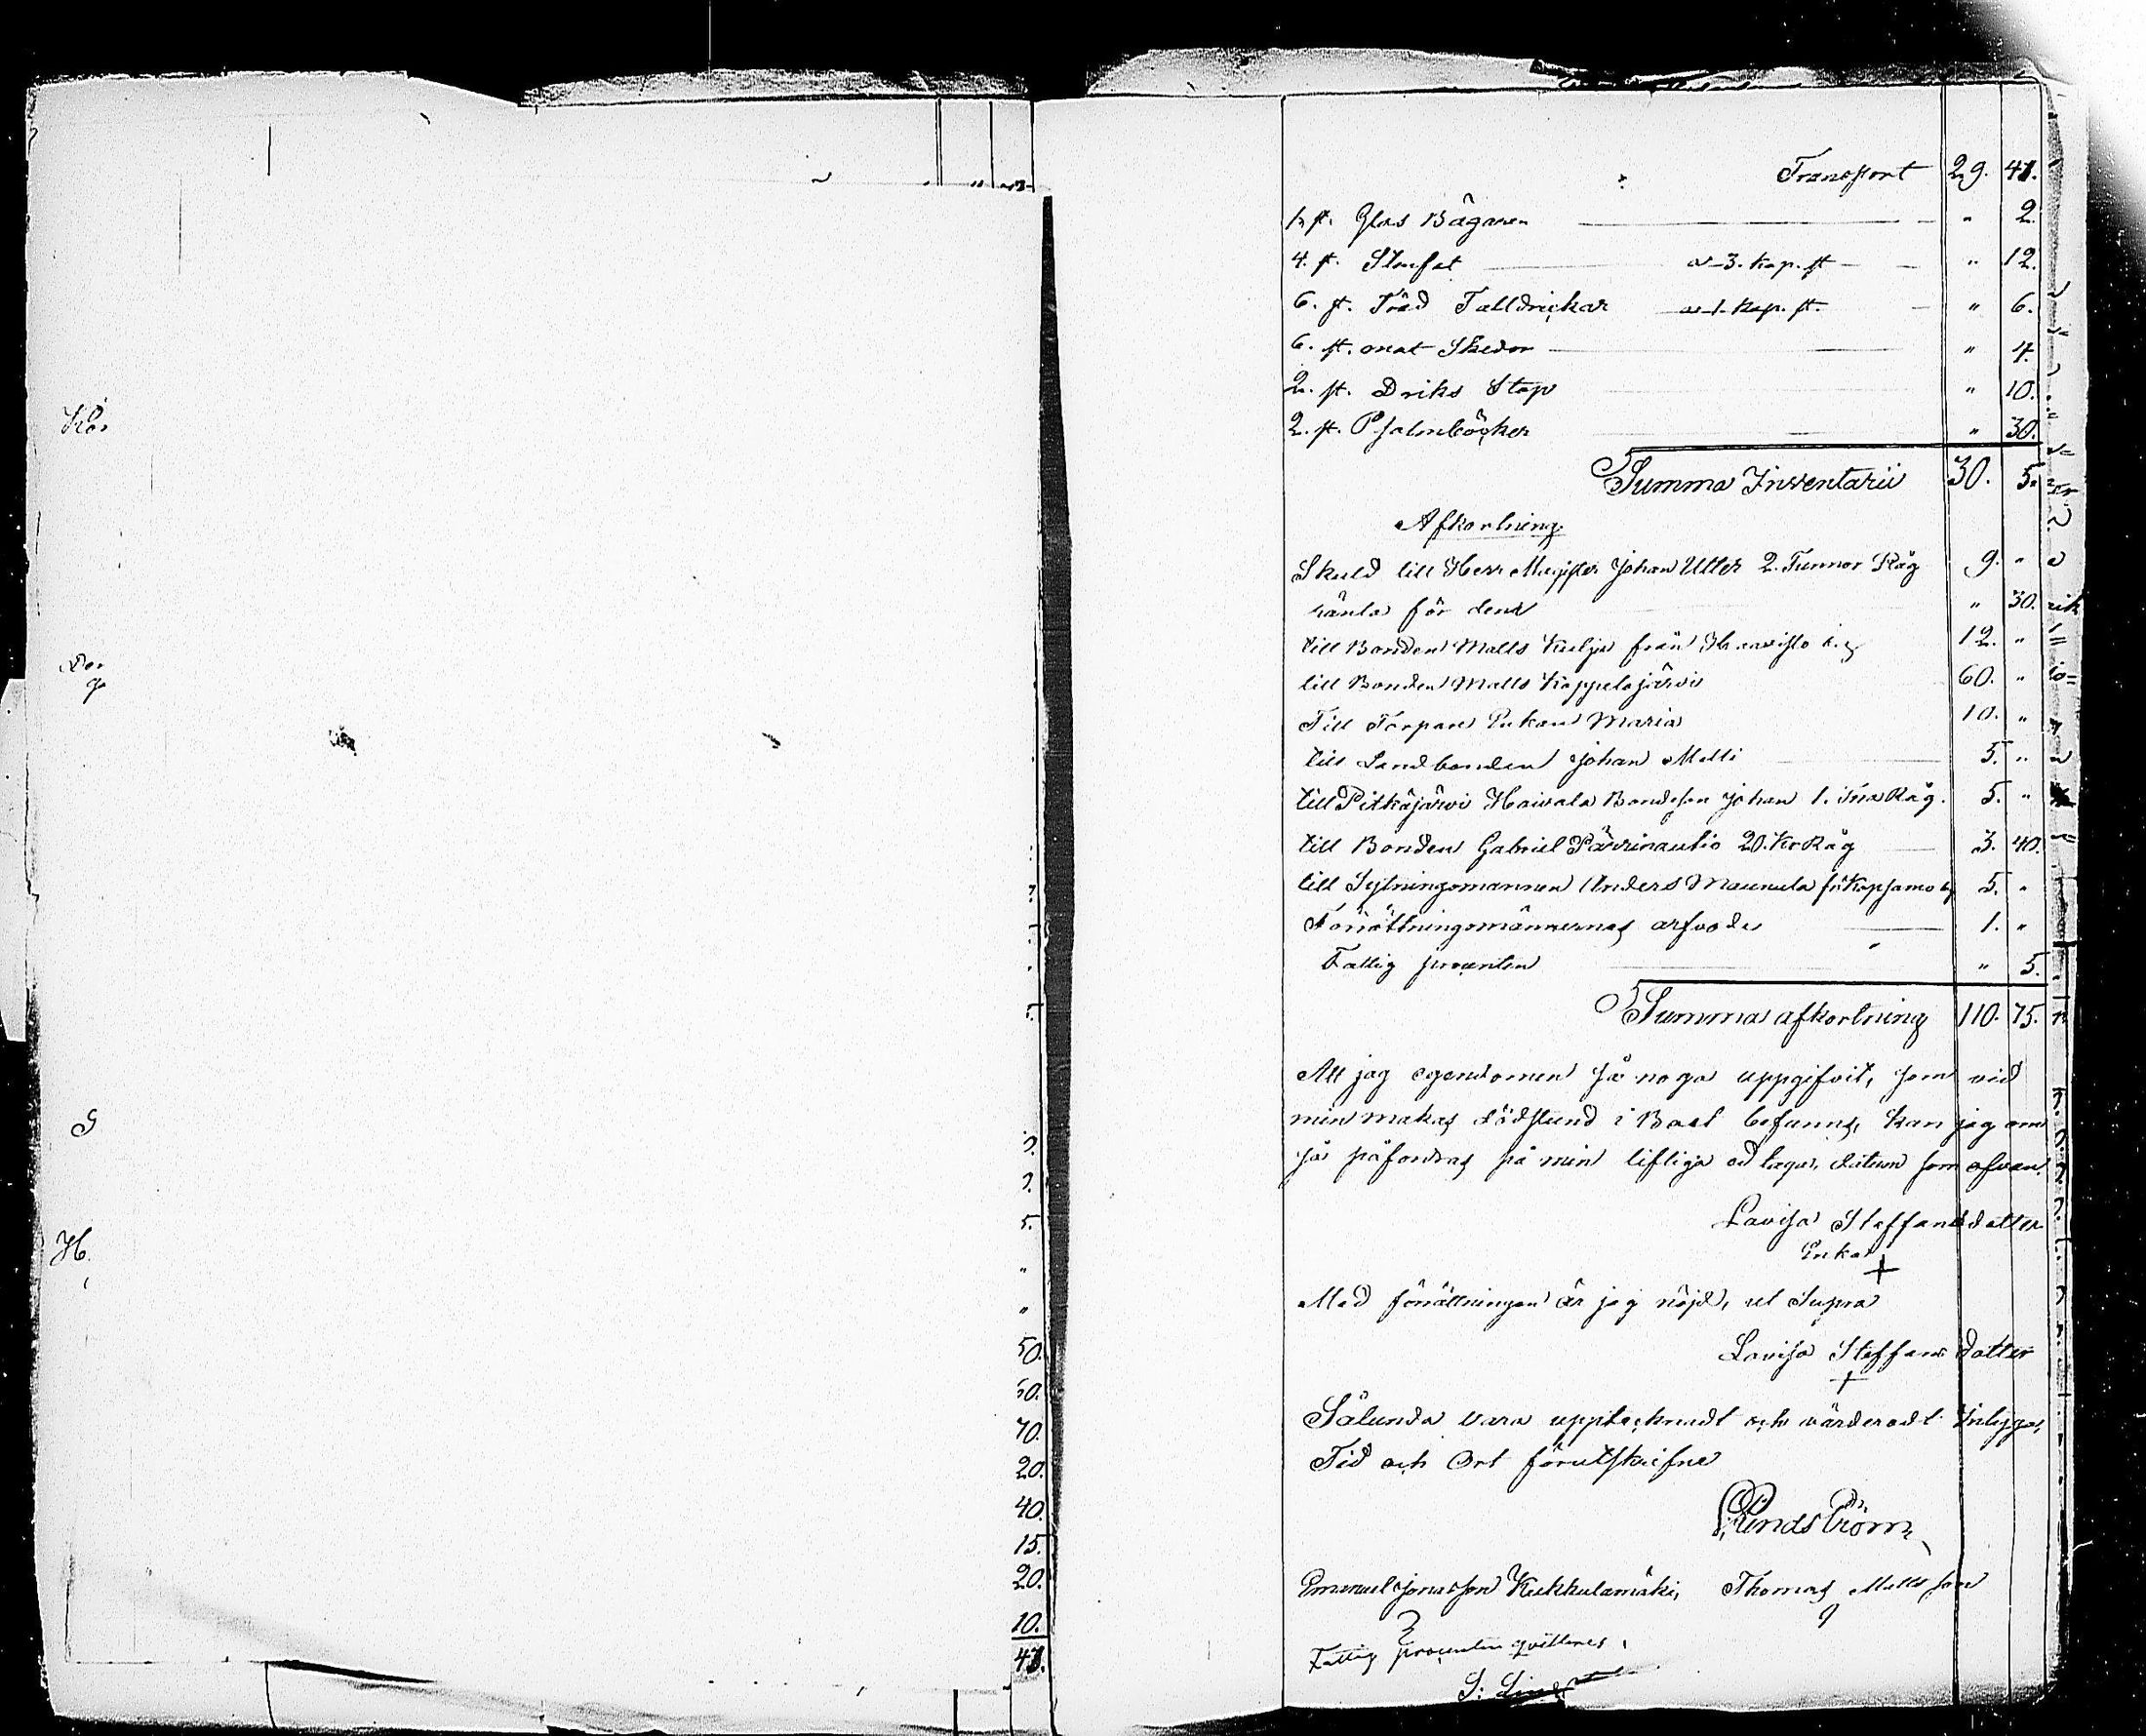 Transport 29. 41.
1. st. Glas Bägare " 2.
4. st. Stenfat a 3. kop. st " 12.
6. st. Träd Talldrickar a 1. kop. st. " 6.
6. st. mat Skedar " 4.
2. st. Dricks Stop " 10.
2. st. Psalmböcker " 30.
Summa Inventarii 30. 5.
Afkortning
Skuld till Herr Magister Johan Utter 2. Tunnor Råg 9. "
ränta för dem " 30.
till Bonden Matts Kulju från 12. "
till Bonden Matts Kappelojärvi 60. "
Till Torpare Enkan Maria 10. "
till Landbonden Johan Matti 5. "
till Pitkäjärvi Haivala Bondeson Johan 1. Tna Råg. 5. "
till Bonden Gabriel 20. Kr Råg 3. 40.
till Sytningsmannen Anders Maunula fr. by 5. "
Förrättningsmännernas arfvode 1. "
Fattig procenten " 5.
Summa afkortning 110. 75.
Att jag egendomen så noga uppgifvit, som vid
min makas dödstund i Boet befanns, kan jag om
så påfordras på min lifliga ed taga, datum som ofvan.
Lovisa Staffansdotter
Enka
+
Med förrättningen är jag nöjd, ut Supra
Lovisa Staffans dotter
+
Sålunda vara upptecknadt och värderadt intyga,
Tid och Ort förutskrifne
Sundström
Emanuel Jonasson Kukkulamäki, Thomas Mattsson
Fattig procenten qvitteras,
Kår
G
H.
5.
50.
70.
20.
40.
15.
20.
10.
41.